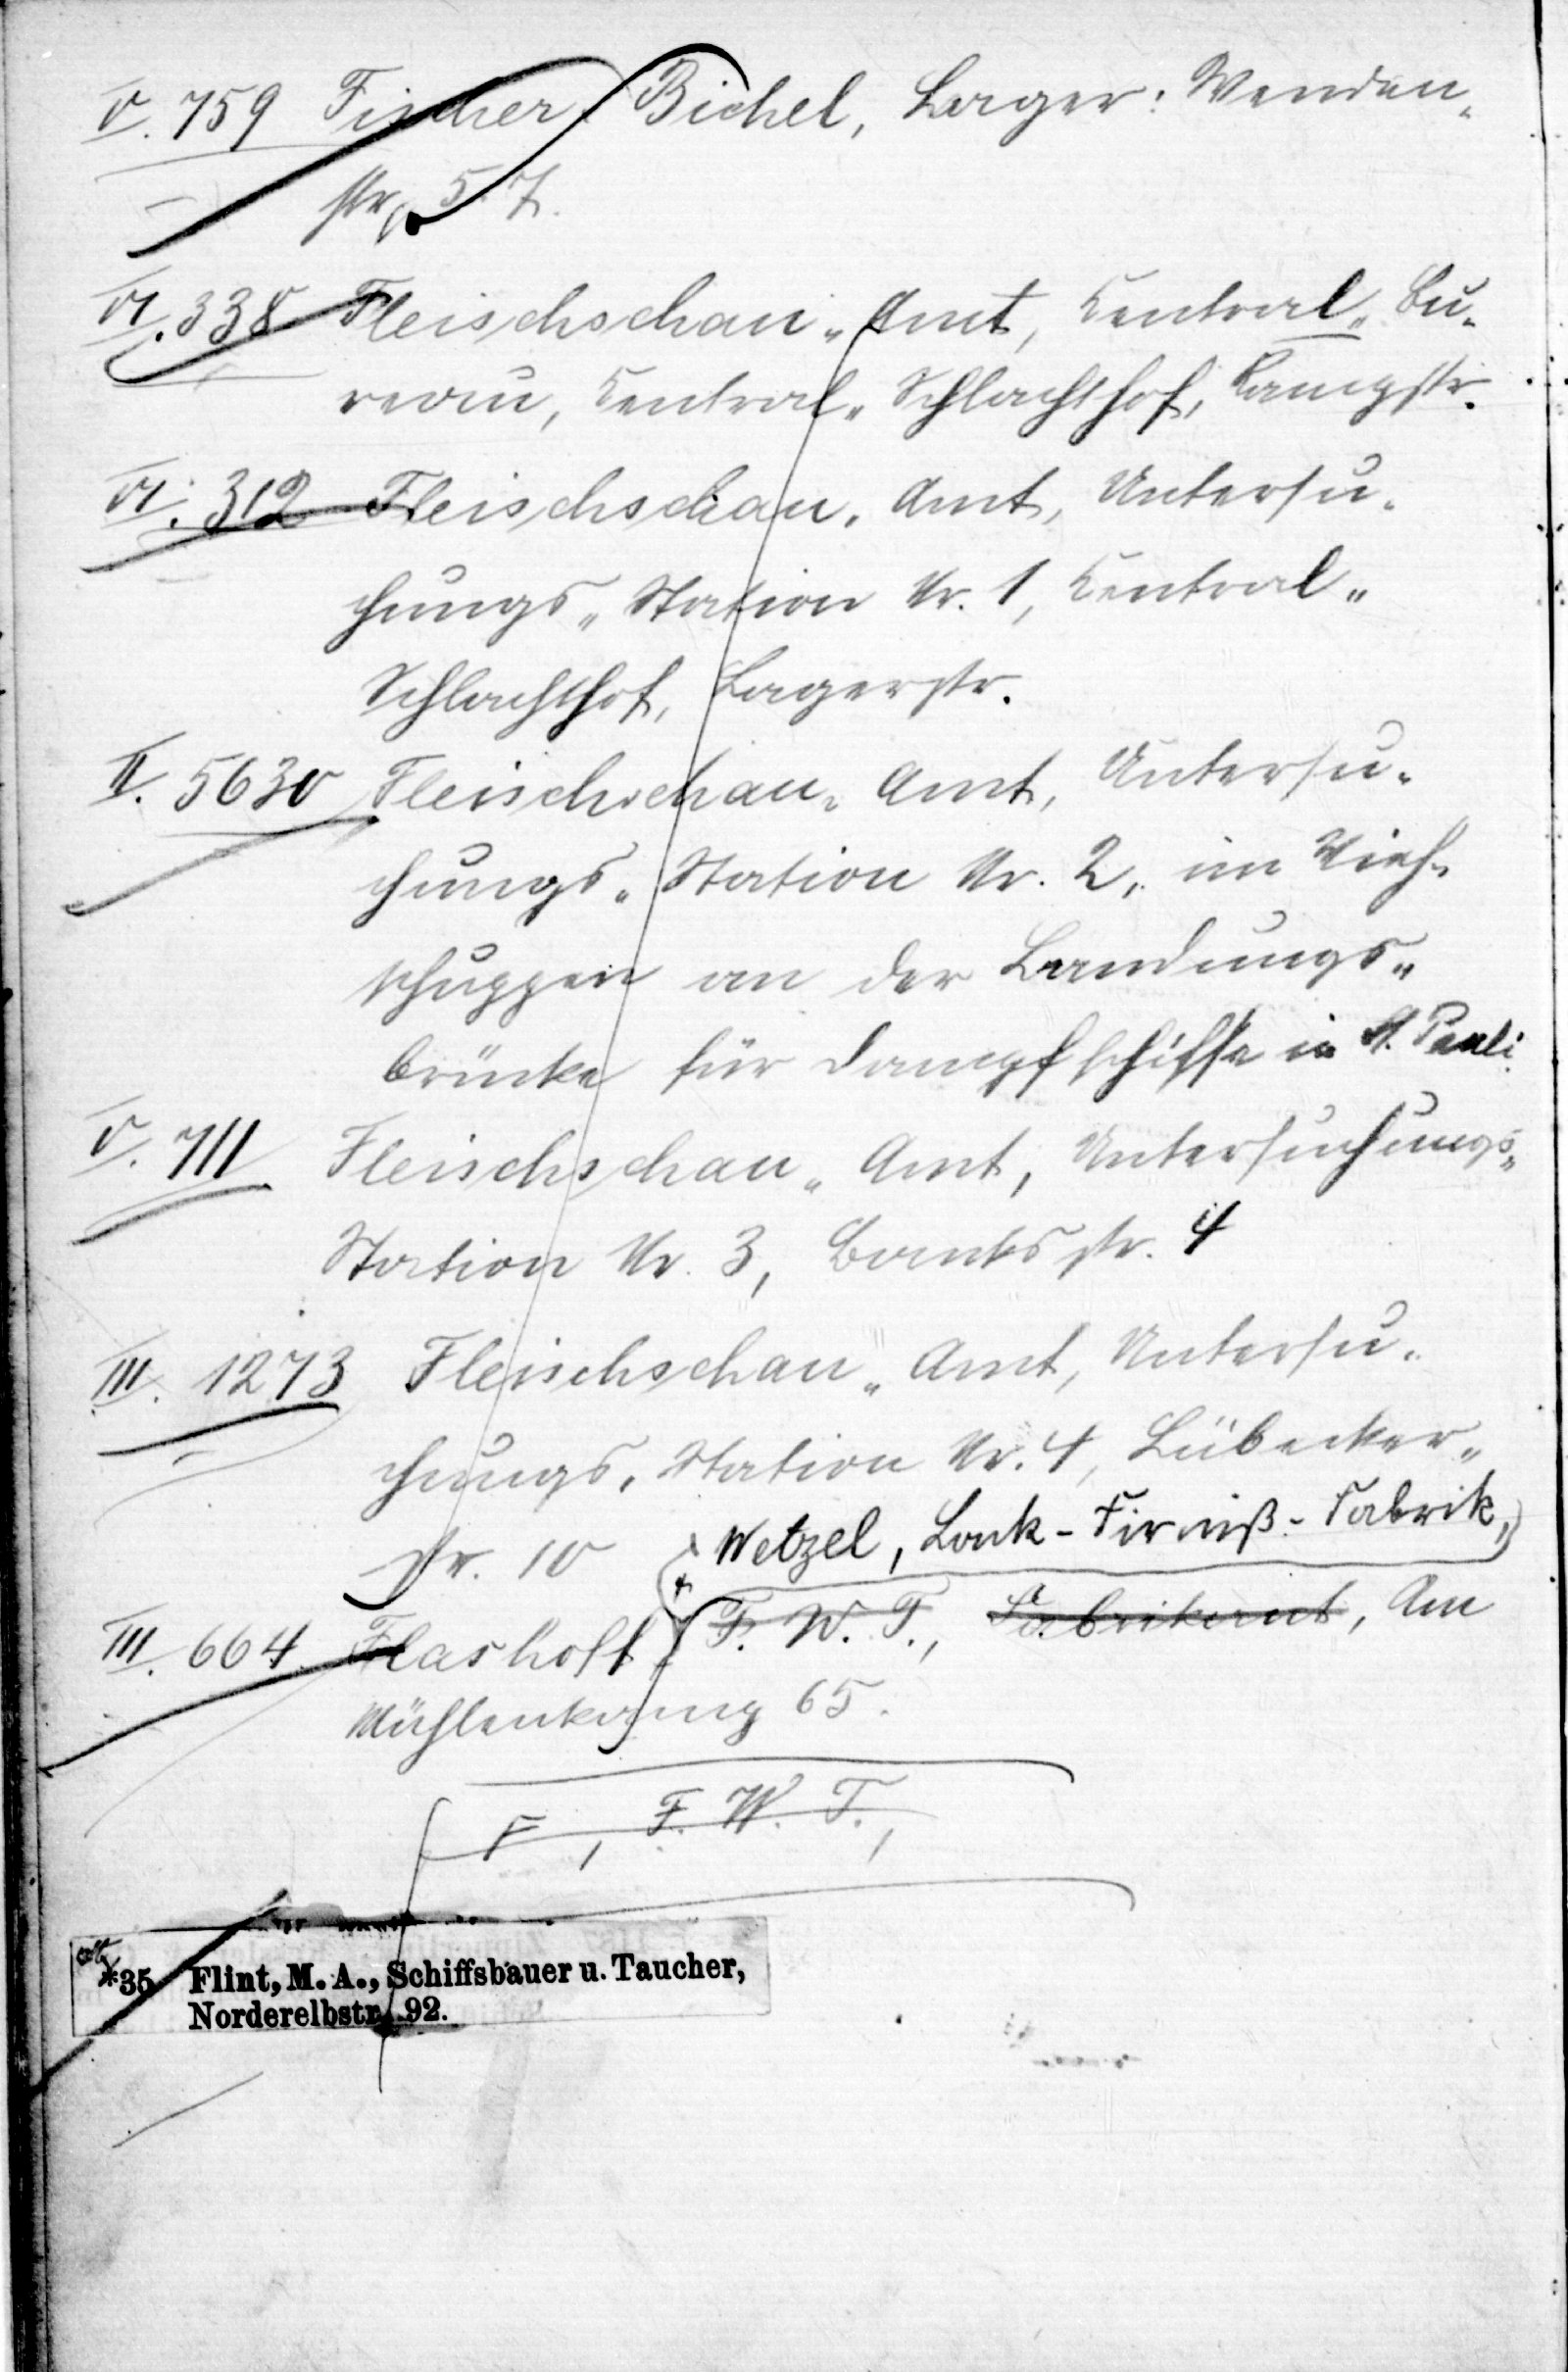 V. 759 Fischer & Bichel, Lager: Wenden-
str. 57.
VI. 338 Fleischschau-Amt, Central-Bu-
reau, Central-Schlachthof, Kampstr.
VI. 312 Fleischschau-Amt, Untersu-
chungs-Station Nr. 1, Central-
Schlachthof, Lagerstr.
II. 5630 Fleischschau-Amt, Untersu-
chungs-Station Nr. 2, im Vieh-
schuppen an der Landungs-
brücke für Dampfschiffe in St. Pauli
V. 711 Fleischschau-Amt, Untersuchungs-
Station Nr. 3, Banksstr. 4
III. 1273 Fleischschau-Amt, Untersu-
chungs-Station Nr. 4, Lübecker-
str. 10
& Wetzel, Lack-Firniß-Fabrik,
III. 664. Flashoff, F. W. T., Fabrikant, Am
Mühlenkamp 65.
F, F. W. T.,
*35 Flint, M. A., Schiffsbauer u. Taucher,
Norderelbstr. 92.